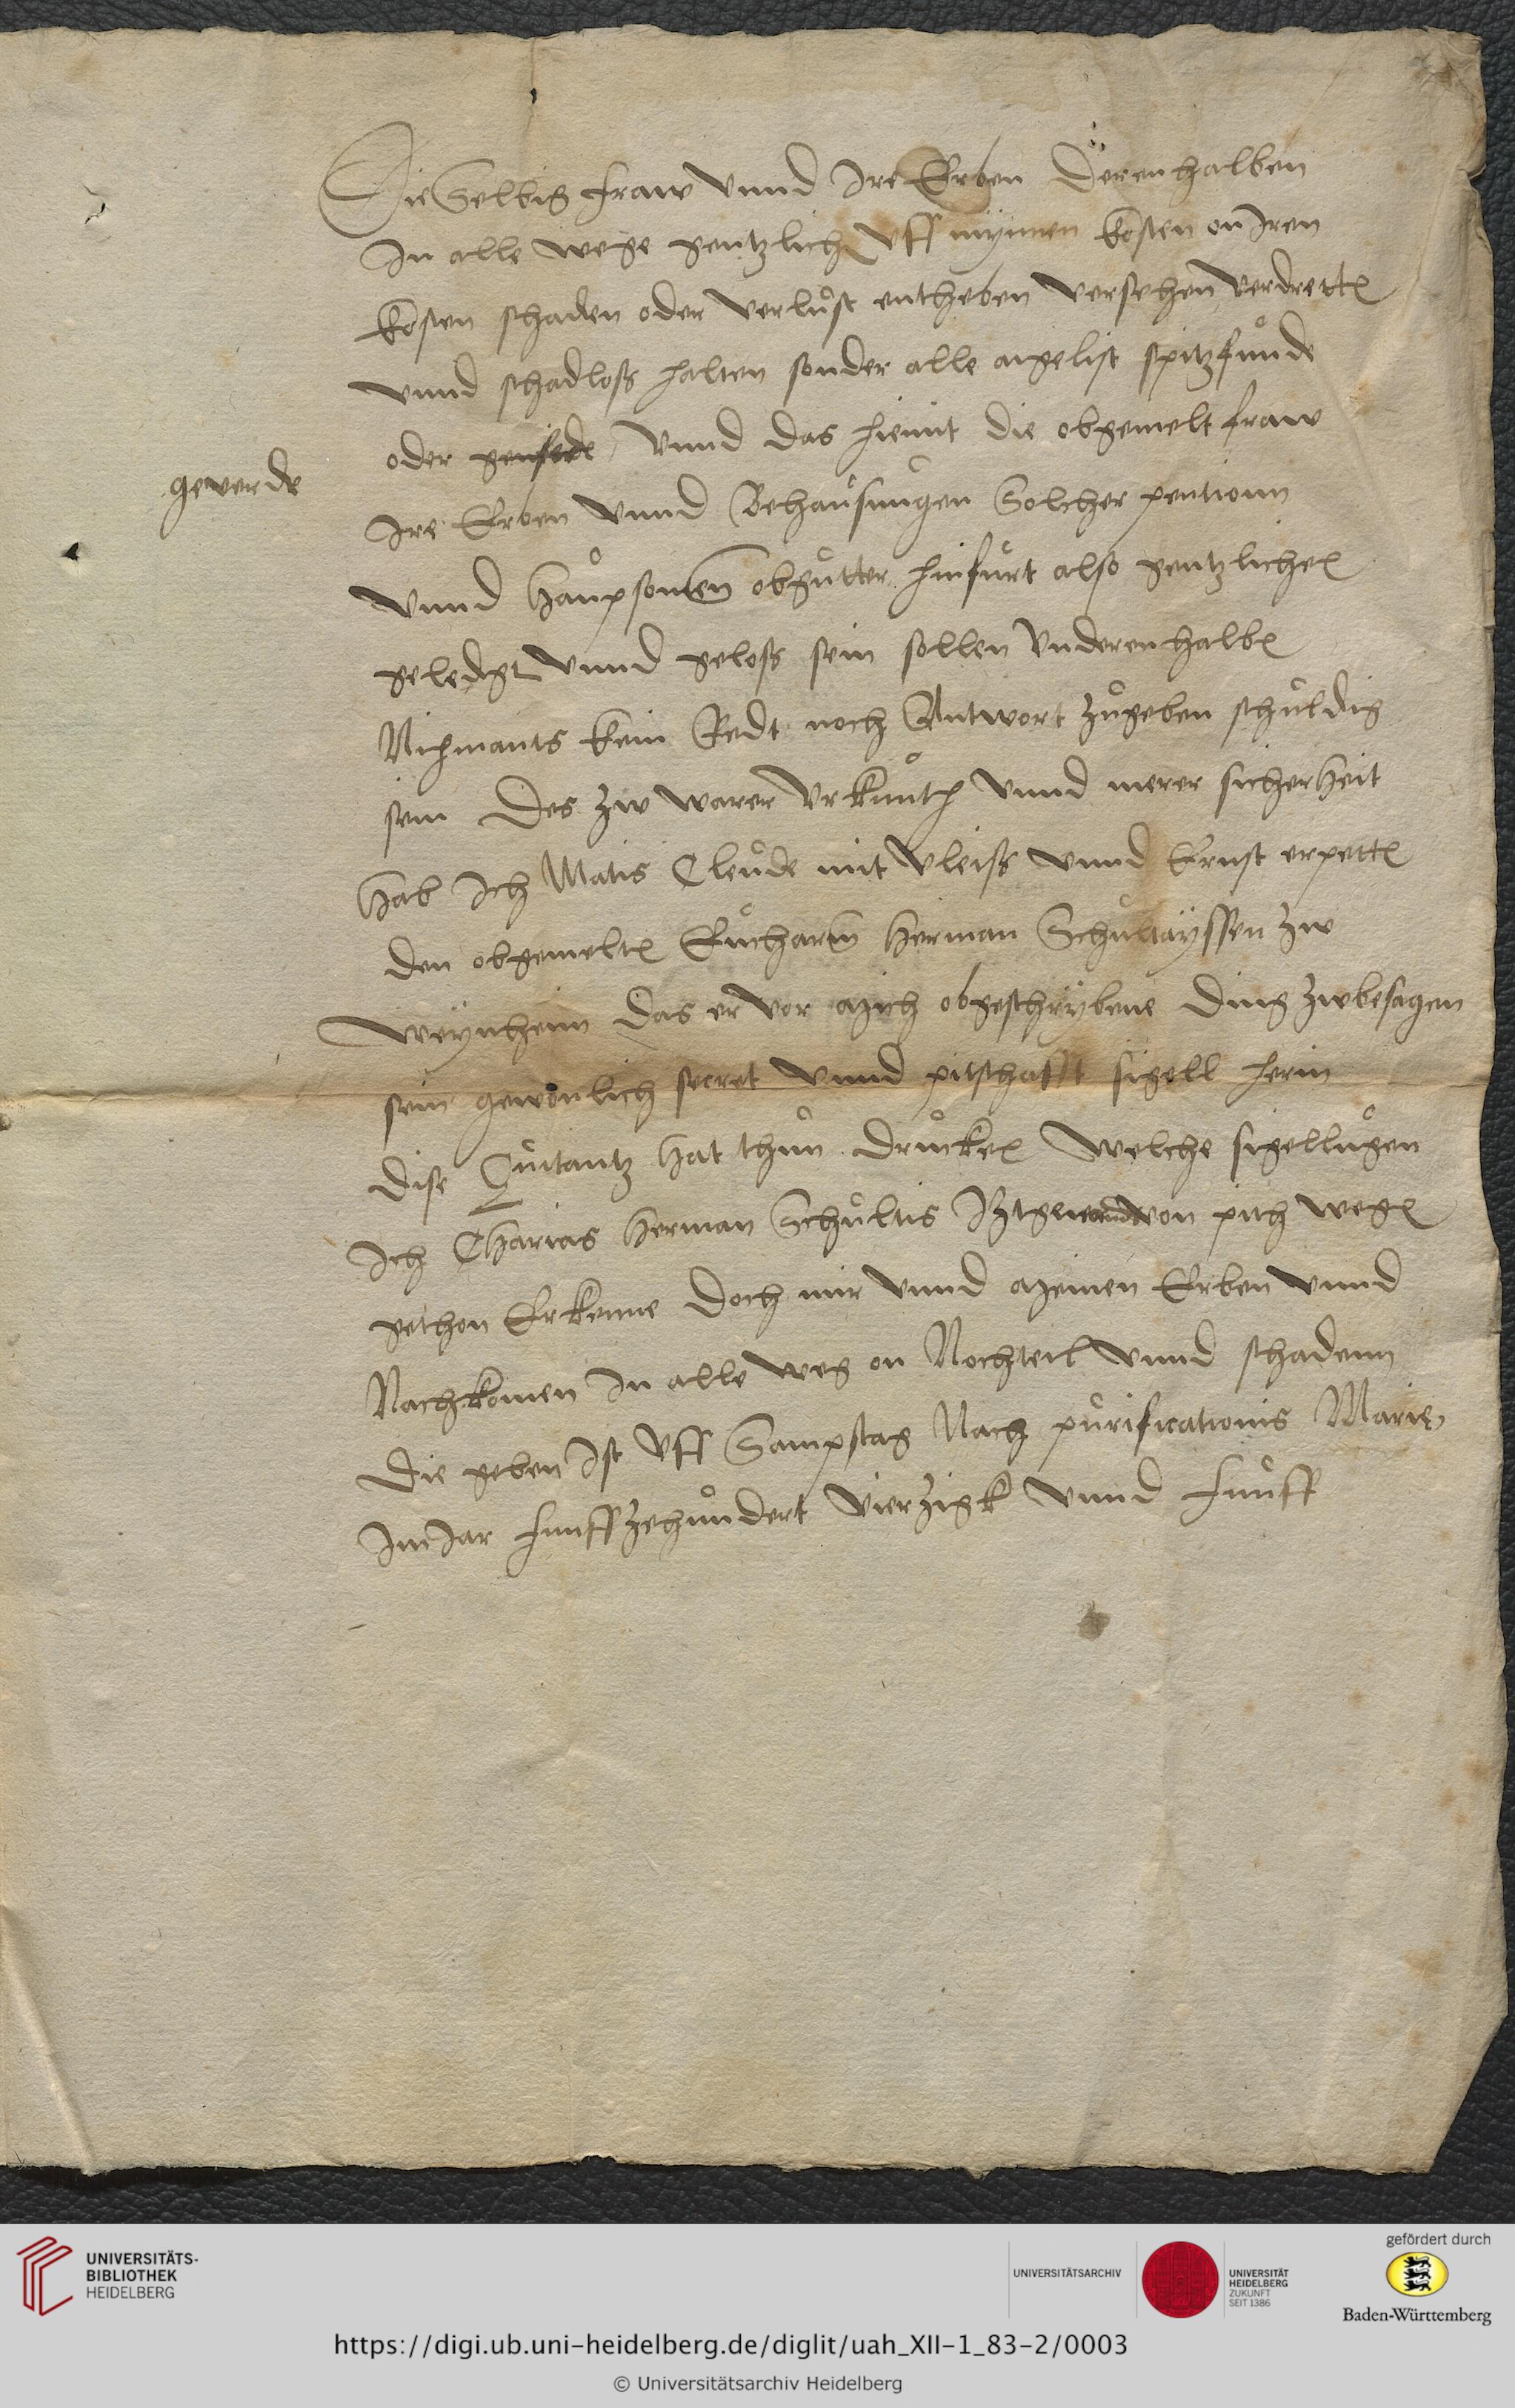 Die Selbig fraw Vnnd Ire Erben Derenhalben
In alle wege gentzlich Vff mynnen kosten on Iren
kosten schaden oder verlust entheben versehen Verdretten
vnnd schadloss halten sonder alle argelist spitzfunde
oder Vnnd das hiemit die obgemelt fraw
geverde
Ire Erben Vnnd Behausungen Solcher pention
Vnnd haupsomen obgutter hinfurt also gentzlichen
geledigt Vnnd geloss sein sollen Vnderenhalben
Nichmants kein Redt noch Antwort zugeben schuldig
sein Des zw warer Vrkunth Vnnd merer sicherheit
hab Ich Matis Cleude mit Vleiss vnnd Ernst erpetten
den obgemelten Eucharin Herman Schultayssen zw
Weynheim Das er vor mich obgeschrybene Ding zwbesagen
sein gewonlich secret Vnnd pitschafft sigell herin
dise Quitantz hat thun drucken Welche sigellugen
Ich Charias Herman Schultis Itzgenand von pith wegen
gethon Erkenne Doch mir Vnnd meinen Erben Vnnd
Nachkomen In alle weg on Nochteil Vnnd schadenn
Die geben Ist Vff Sampstag Nach purificationis Marie
Im Jar funffzehundert Vierzigk Vnnd funff
UNIVERSITÄTS-
BIBLIOTHEK
HEIDELBERG
UNIVERSITÄTSARCHIV
UNIVERSITÄT
HEIDELBERG
ZUKUNFT
SEIT 1386
gefördert durch
Baden-Württemberg
https://digi.ub.uni-heidelberg.de/diglit/uah_XII-1_83-2/0003
© Universitätsarchiv Heidelberg